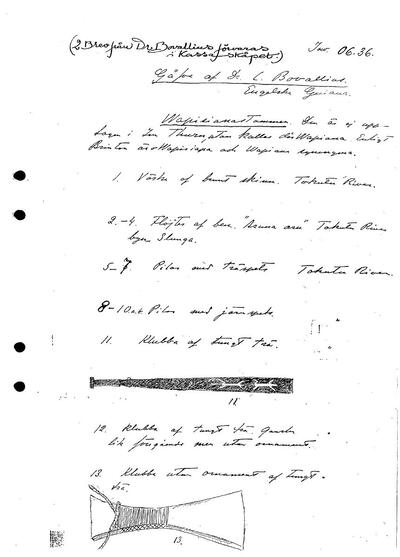 (2 Bref från Dr. Bovallius förvaras
i Kassaskåpet.)
Inv. 06.36.
Gåfva af Dr. C. Bovallius.
Engelska Guiana.
Wapisiana-stammen. Den är ej upp-
tagen i
kallas där Wapiana Enligt
Brinton äro Wapisiana och Wapiana synonyma.
1. Väska af brunt skinn. Takutu River.
2.-4. Flöjter af ben. Takutu River
byn
5-7. Pilar med träspets Takutu River.
8-10 Pilar med järnspets. "
11. Klubba af tungt trä. "
11.
12. Klubba af tungt trä
lik föregående men utan ornament. "
13. Klubba utan ornament af tungt "
trä.
13.